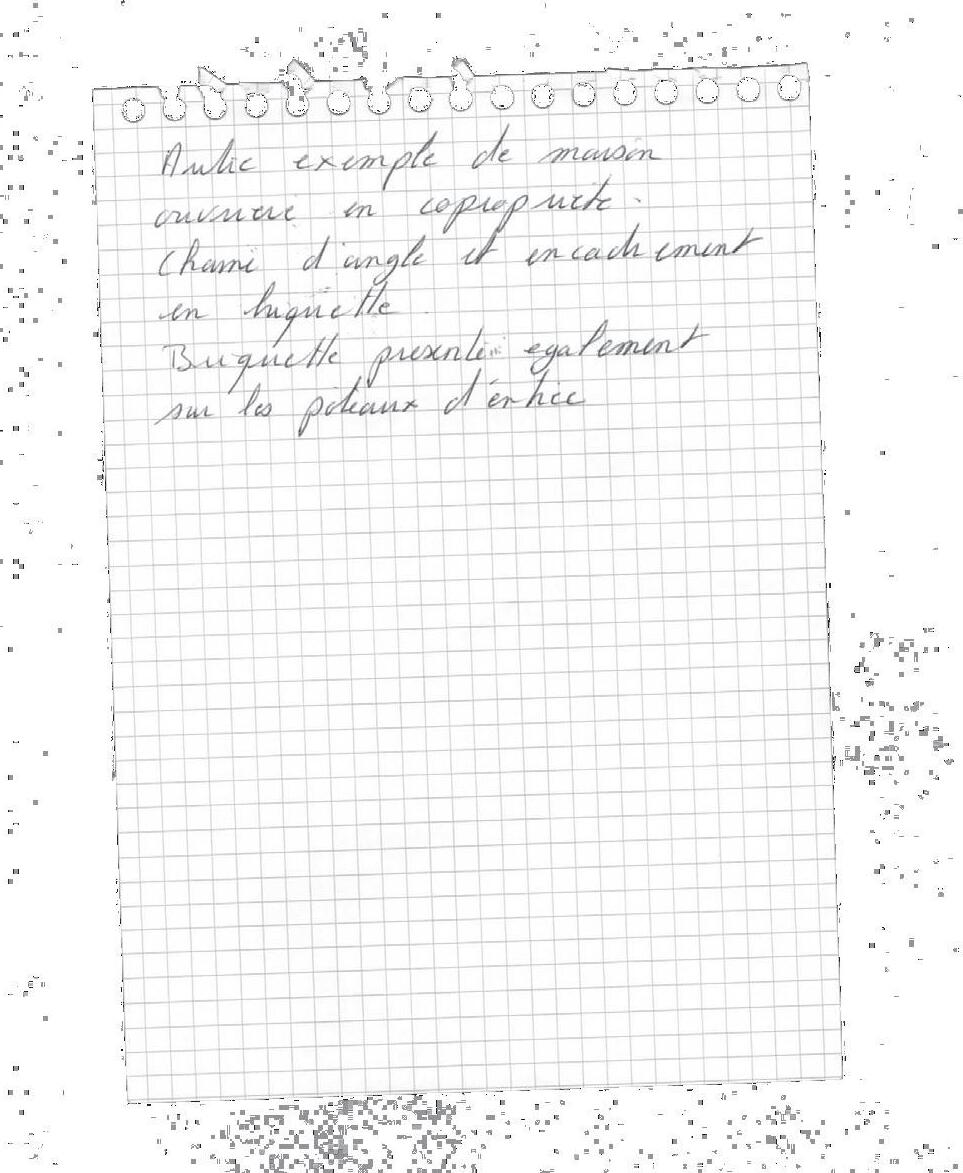 Autre exemple de maison
ouvriere en copropriete.
Chaine d'angle et encadrement
en briquette.
Briquette presente egalement
sur les poteaux d'entree